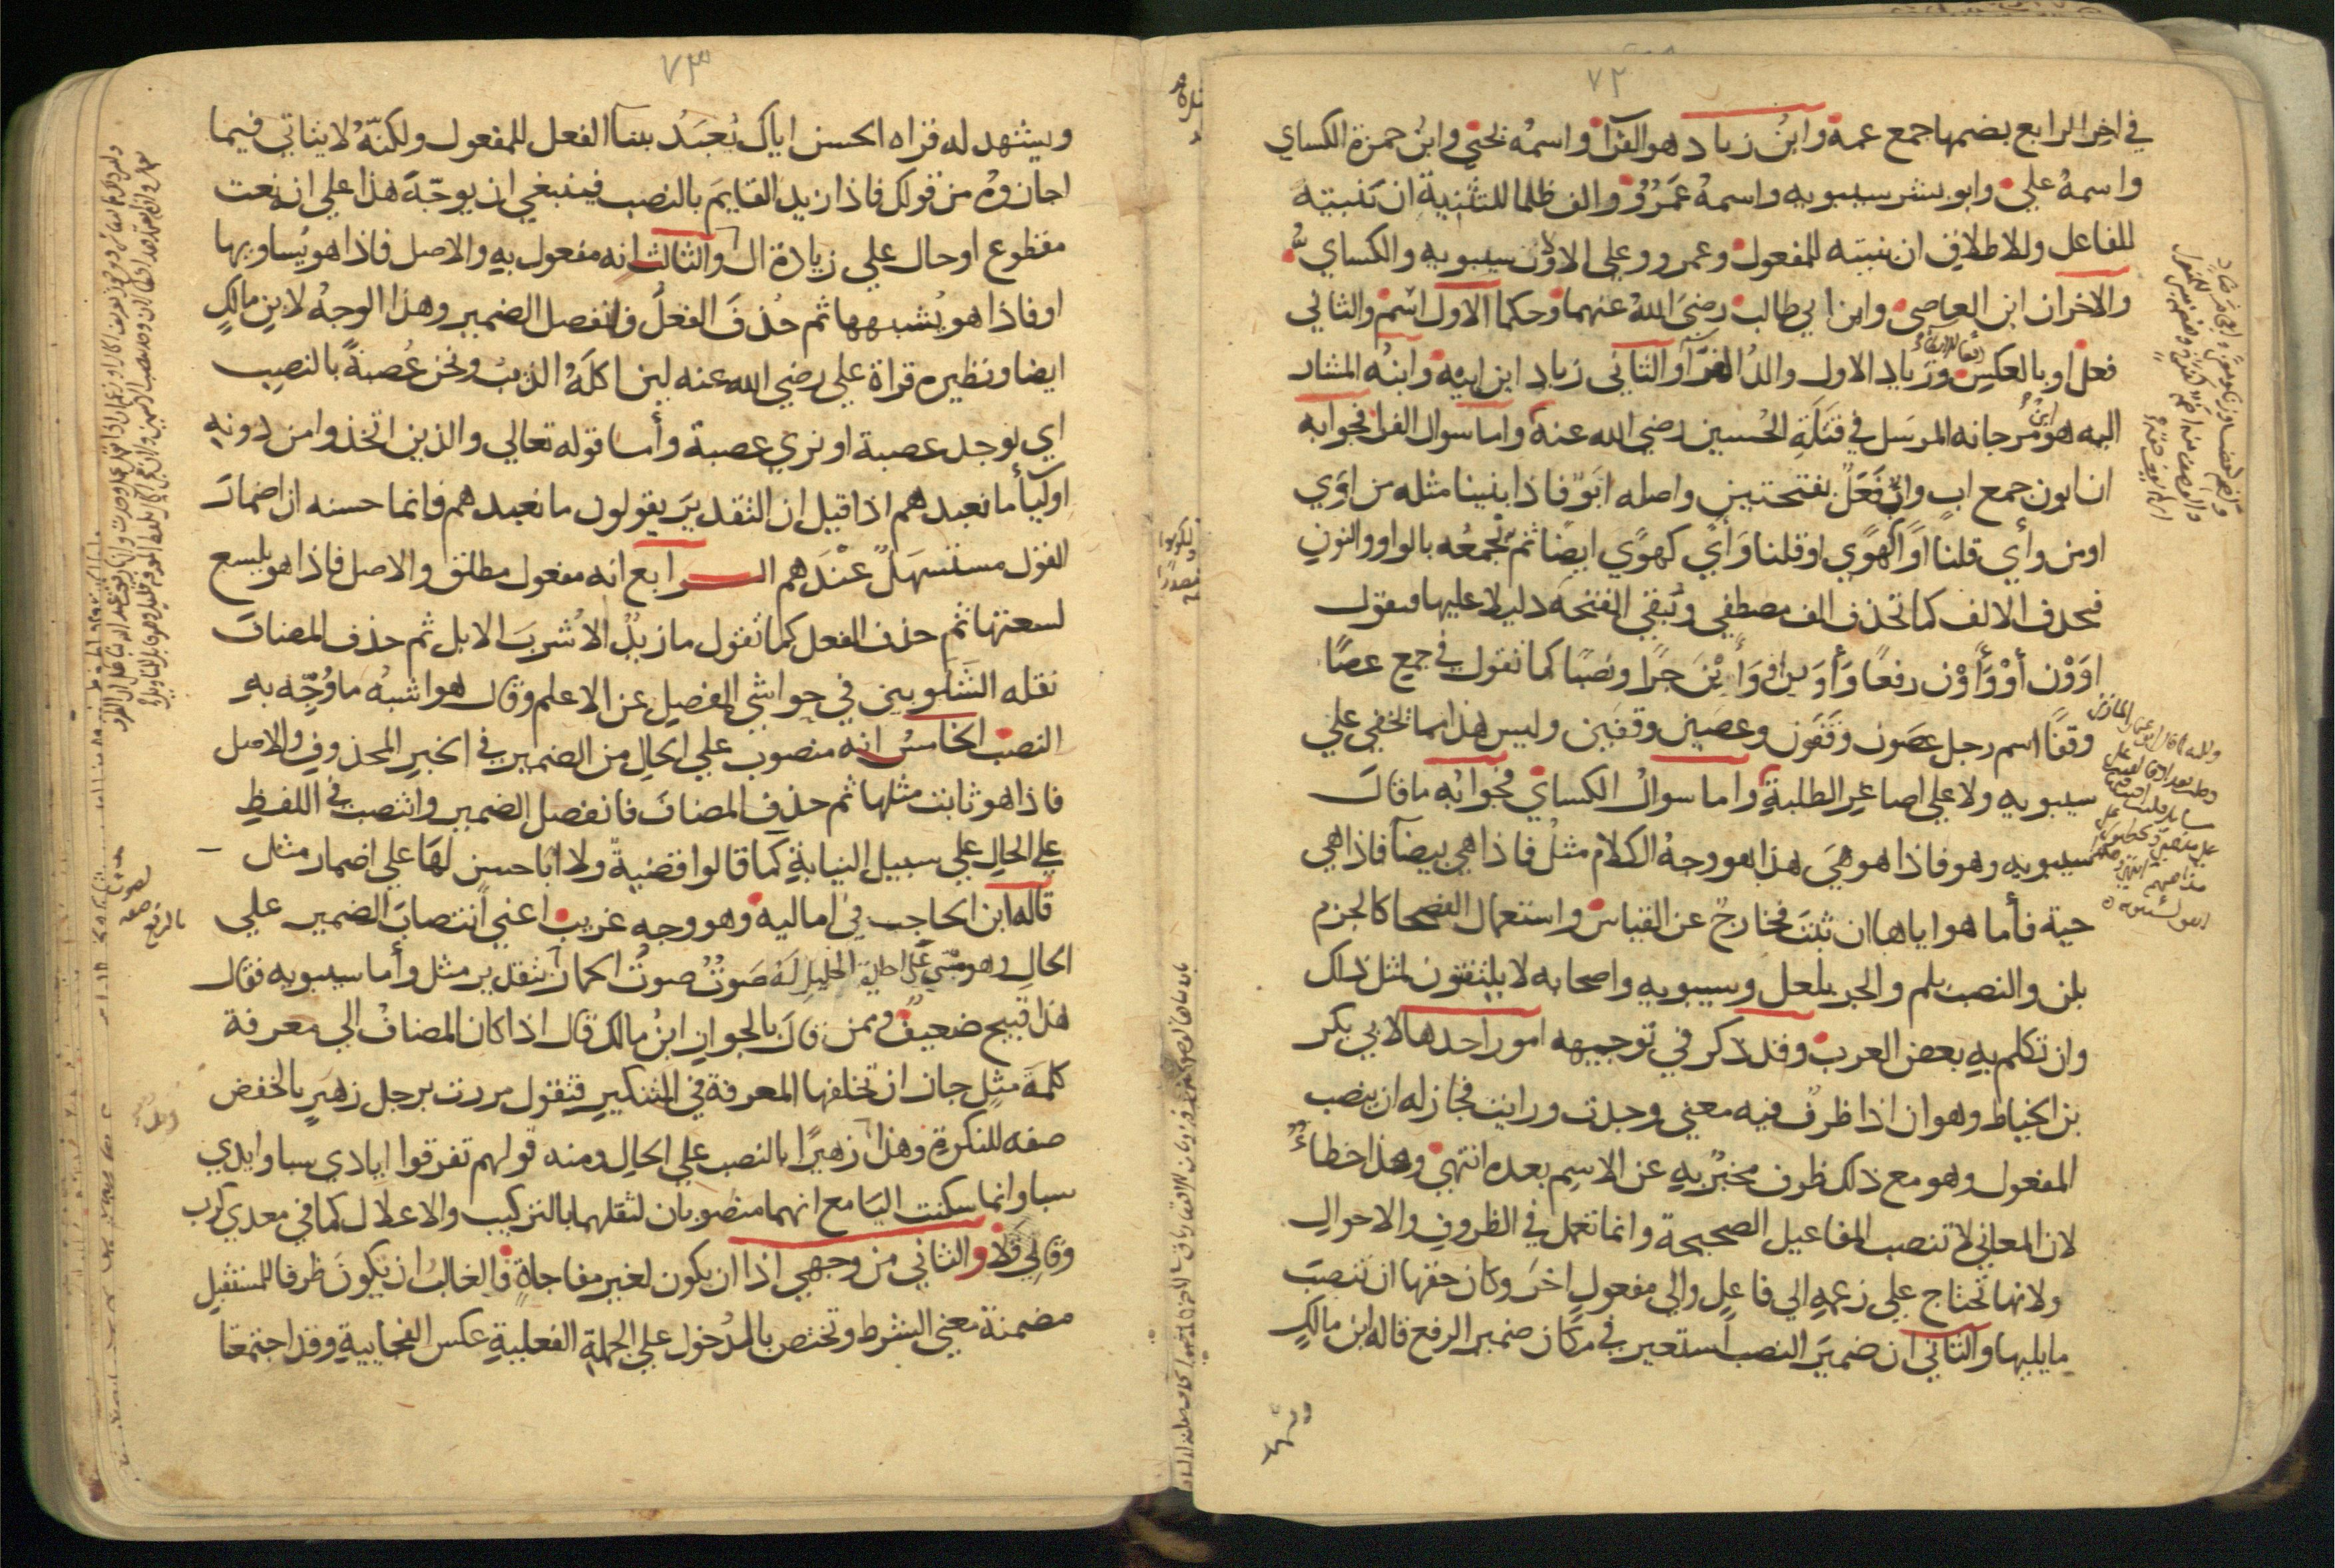 ٧٢
في اخر الرابع بضمها جمع عمة وابن زياد هو الفرآ واسمه يحيى وابن حمزة الكساي
واسمهُ علي وابو بشر سيبويه واسمهُ عَمْرٌو والف ظلما للتثنية ان بنيته
للفاعل وللاطلاق ان بنيته للمفعول وعمرو وعلي الاولان سيبويه والكساي
والاخران ابن العاصي وابن ابي طالب رضي اللهُ عنهما وحكما الاول اسْم والثاني
فعل او بالعكس وزياد الاول والدُ الفرّآ والثاني زياد ابن ابيه وابنُه المشار
اليه هو ابن مرجانه المرسَل في قتَلَةِ الحُسين رضي الله عنه واما سوال الفرا فجوابه
ان ابون جمع ابٍ واب فَعَلٌ بفتحتين واصله ابَوٌ فاذا بنينا مثله من اوَي
او من وأي قلنا اوًا كهوًي او قلنا وَأيً كهوًي ايضا ثم تجمعُه بالواو والنونِ
فتحذف الالف كما تحذف الف مصطفي وتبقي الفتحَه دليلا عليها فتقول
اوَوْن أوْ وَأَوْن رفعًا وَأوَيْن او وَأَيْنَ جرًا ونصبًا كما تقول في جمع عصًا
وقفًا اسم رجل عصَون وقَفَون وعصَين وقفَين وليس هذا مما يخفي علي
سيبويه ولا علي اصاغر الطلبةِ واما سوالُ الكساي فجوابُه ما قالَ
سيبويه وهو فاذا هو هيَ هذا هو وجهُ الكلام مثلُ فاذا هي بيضآ فاذا هي
حية فأما هو اياها ان ثبتَ فخارجٌ عن القياس واستعمال الفصحا كالجزم
بلن والنصب بلم والجر بلعل وسيبويه واصحابه لا يلتفتون لمثل ذلك
وان تكلم بهِ بعض العرب وقد ذكر في توجيهه امور احدها لابي بكر
بن الخياط وهو ان اذا ظرفٌ فيه معني وجدت ورايت فجاز له ان ينصب
المفعول وهو مع ذلك ظرف مخبَرٌ بهِ عن الاسِم بعده انتهي وهذا خطاءٌ
لان المعاني لا تنصب المفاعيل الصحيحة وانما تعمل في الظروفِ والاحوالِ
ولانها تحتاج علي زعمهِ الي فاعلٍ والي مفعولٍ اخرَ وكان حقها ان تنصبَ
ما يليها والثاني ان ضميرَ النصب استعير في مكان ضمير الرفع قاله ابن مالكٍ
ويشهد
٧٣
ويشهد له قراه الحسن اياك يُعبَدُ ببنآ الفعل للمفعول ولكنّهُ لا يتاتي فيما
اجازوهُ من قولك فاذا زيد القايمَ بالنصب فينبغي ان يوجّهَ هذا علي انه نعت
مقطوع او حال علي زيادة ال والثالث انه مفعول بهِ والاصل فاذا هو يُساويها
او فاذا هو يُشبهها ثم حُذفَ الفعلُ فانفصل الضمير وهذا الوجهُ لابن مالكٍ
ايضا ونظيره قراة علي رضي الله عنه لين اكلَهُ الذيبُ ونحن عُصبةً بالنصِب
اي نوجد عصبة او نري عصبة وأما قوله تعالي والذين اتخذوا من دونهِ
اوليآ ما نعبدهم اذا قيل ان التقديرَ يقولون ما نعبدهم فانما حسنه ان اضمارَ
القول مستسهَلٌ عنْدَهم الـرابع انه مفعول مطلق والاصل فاذا هو يلسع
لسعتها ثم حذف الفعل كما تقول ما زيدٌ الا شربَ الابل ثم حذف المضاف
نقله الشَلَوبين في حواشي المفصل عن الاعلم وقال هو اشبهُ ما وُجّه بهِ
النصب الخامسُ انه منصوب علي الحالِ من الضمير في الخبرِ المحذوفِ والاصل
فاذا هو ثابت مثلها ثم حذف المضافَ فانفصل الضمير وانتصب في اللفظِ
علي الحالِ علي سبيل النيابةِ كما قالوا قضيةٌ ولا اباحسنِ لهَا علي اضمار مثل
قاله ابن الحاجب في اماليه وهو وجه غريب اعني انتصابَ الضمير علي
الحالِ وهو مبني علي اجازة الخليل لَهُ صَوتٌ صوتُ الحمار بتقدير مثل وأما سيبويه فقال
هذا قبيح ضعيفٌ وممن قالَ بالجوازِ ابنُ مالك قال اذا كان المضافُ الي معرفة
كلمةَ مثلِ جاز ان تخلفها المعرفة في التنكيرِ فتقول مررت برجل زهيرٍ بالخفض
صفه للنكرةِ وهذا زهيرًا بالنصب علي الحالِ ومنه قولهم تفرقوا ايادي سبا وايدي
سبا وانما سكنت اليَا مع انهما منصوبان لثقلهما بالتركيب والاعلال كما في معدي كرب
وقالِي قَلا والثاني من وجهي اذا ان يكون لغير مفاجاةٍ فالغالبُ ان يكونَ ظرفا للمستقبلِ
مضمنة معني الشرط وتختص بالدُخول علي الجملةِ الفعليةِ عكس الفجاييةِ وقد اجتمعا